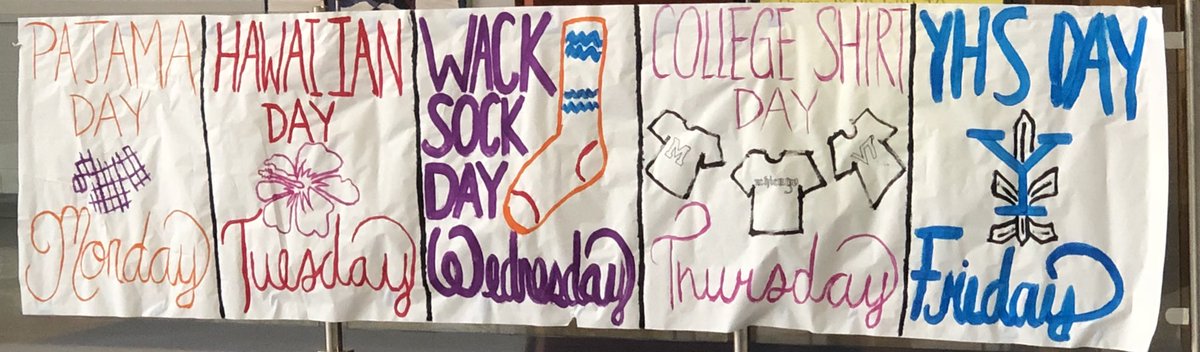 PAJAMA
DAY
Monday
HAWAIIAN
DAY
Tuesday
WACK
SOCK
DAY
Wednesday
COLLEGE SHIRT
DAY
M
VT
Thursday
YHS DAY
Y
Friday